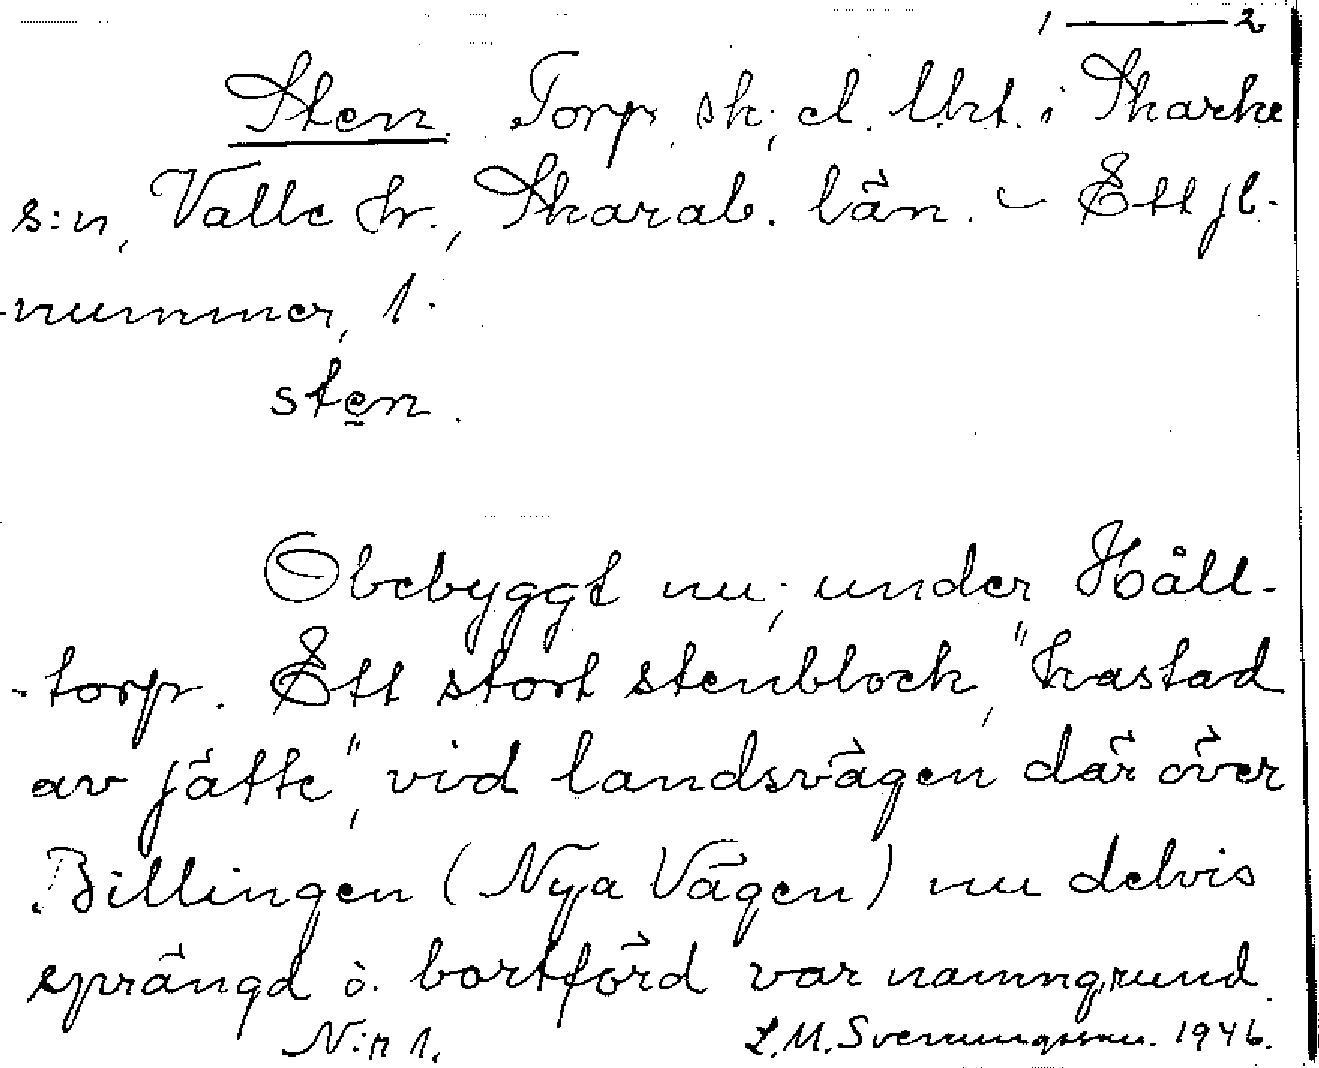 1 — 2
Sten. Torp, sk; el. Urt. i Skarke
s:n, Valle hr., Skarab. län. – Ett jb.
-nummer, 1.
sten.
Obebyggt nu; under Håll-
-torp. Ett stort stenblock, "kastad
av jätte", vid landsvägen där över
Billingen (Nya Vägen) nu delvis
sprängd o. bortförd var namngrund.
N:r 1.
L.M. Svenungsson. 1946.